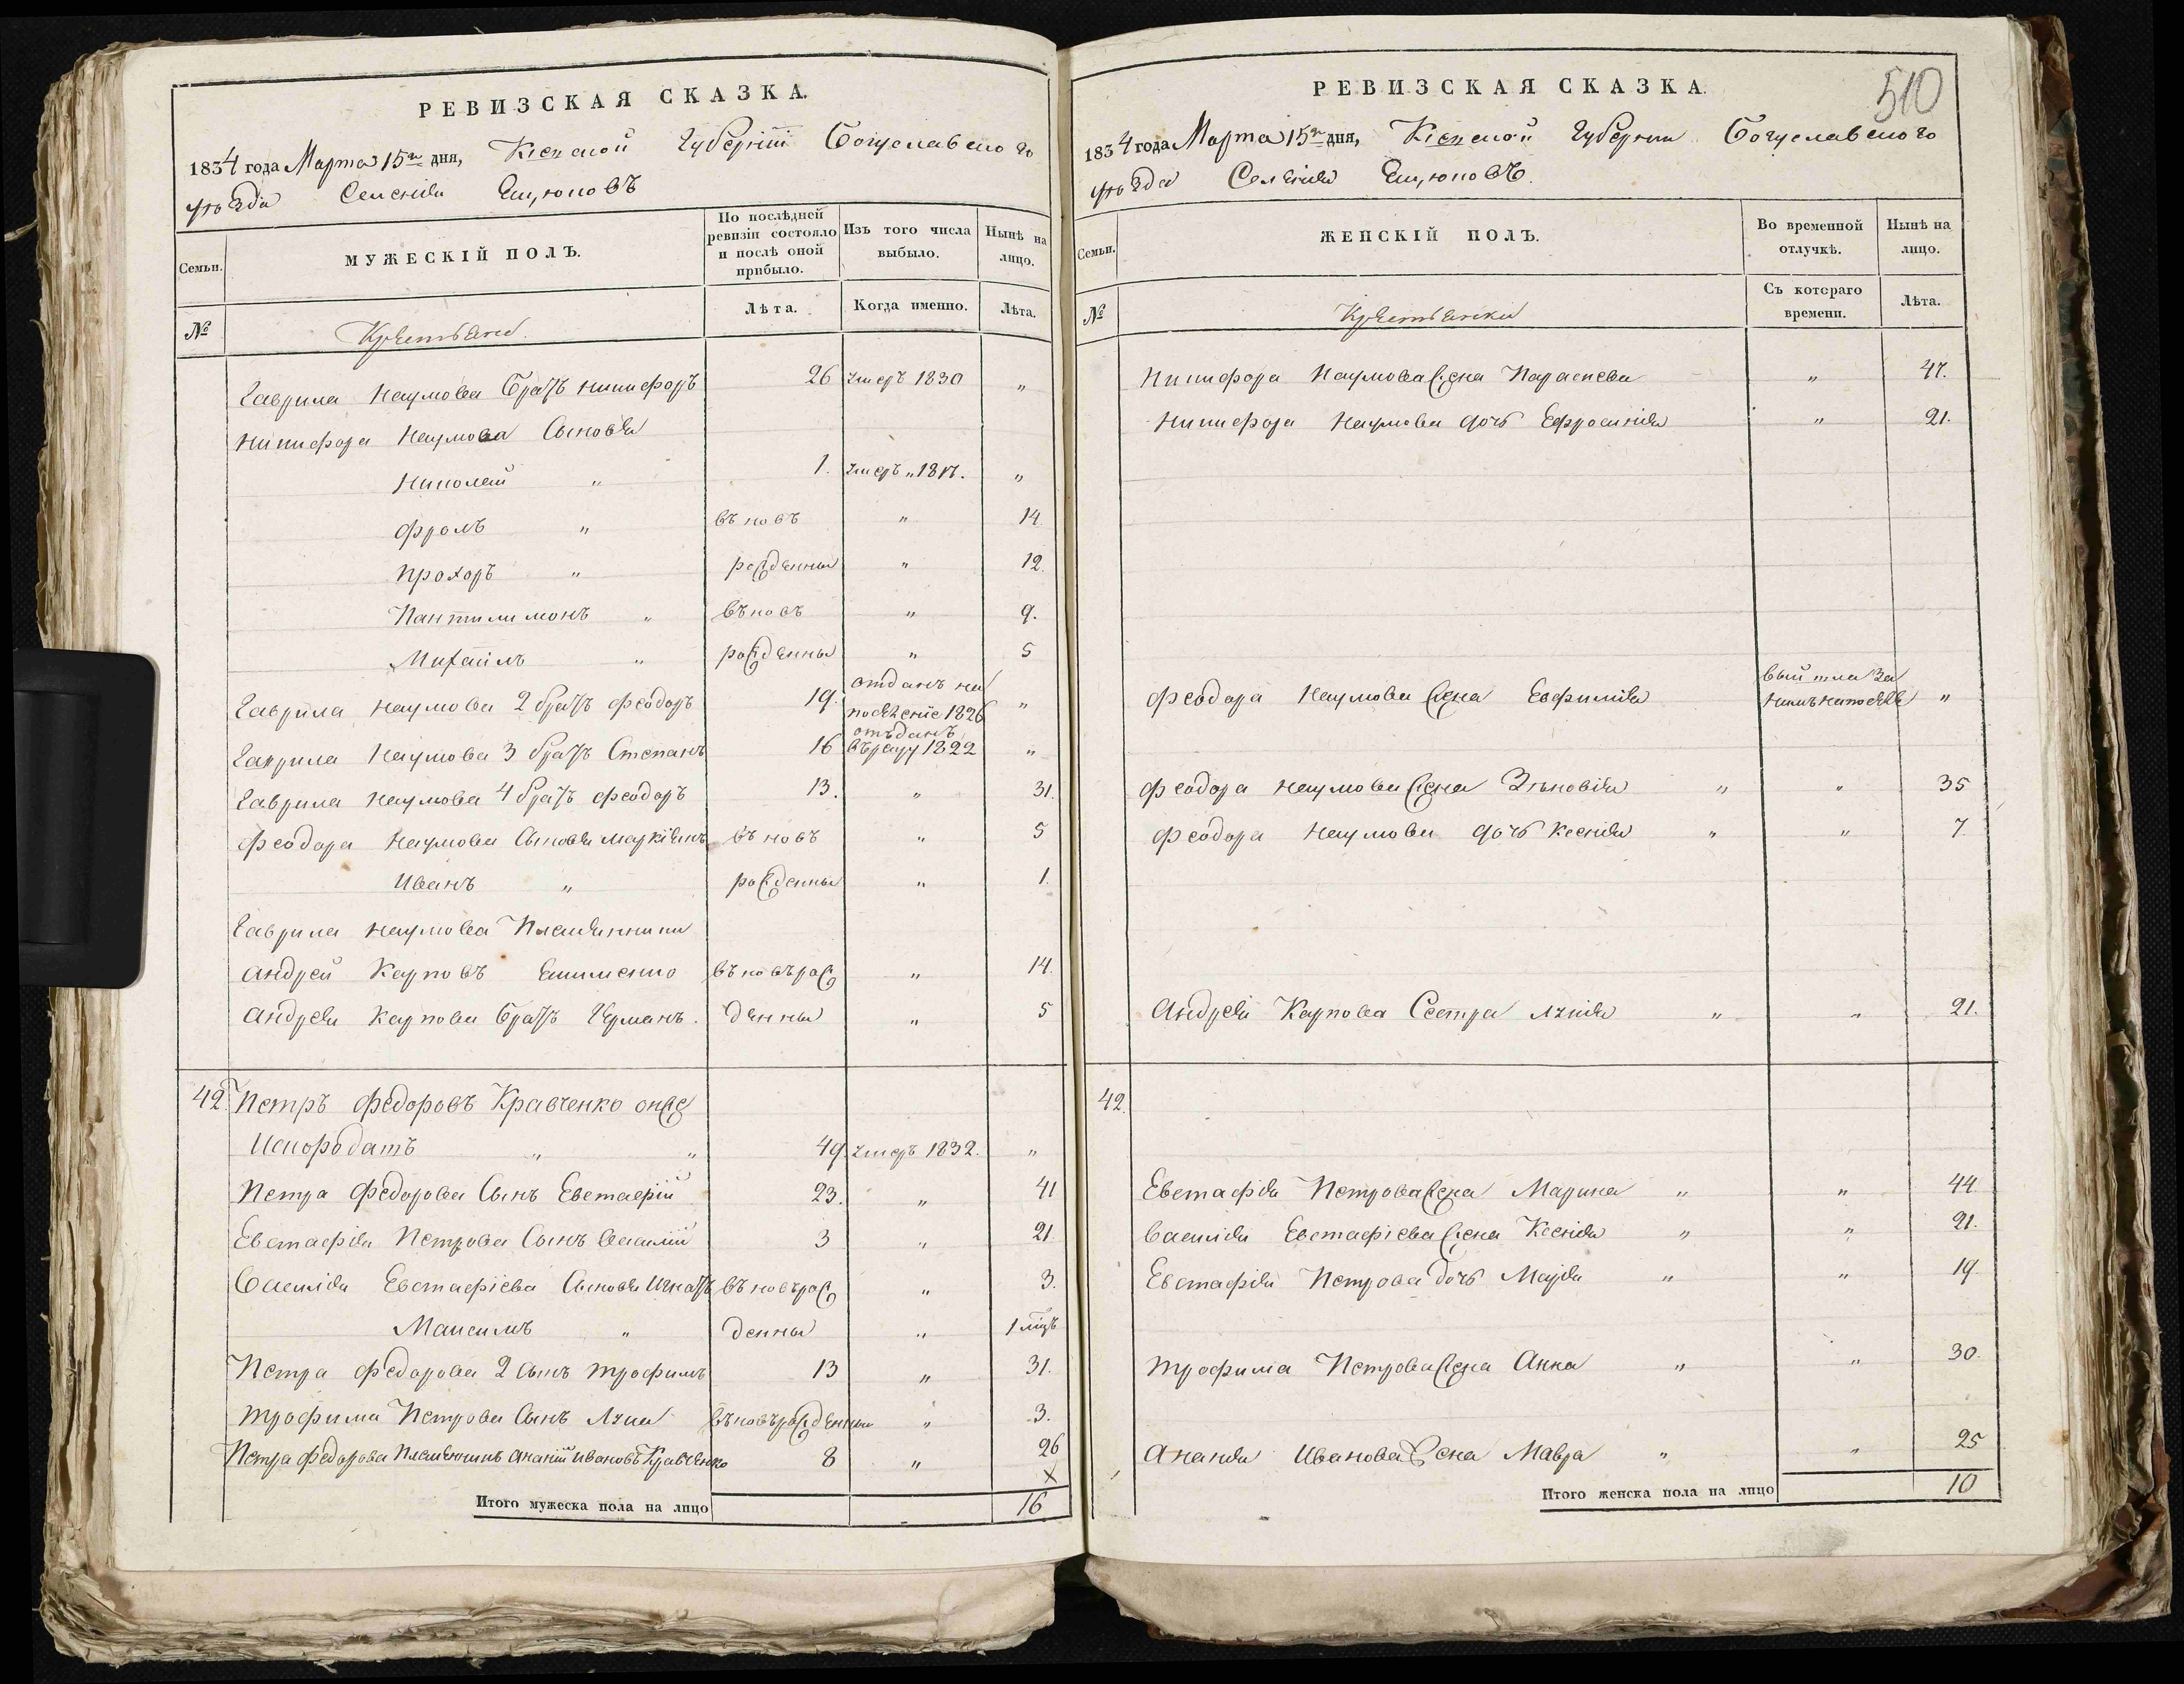 РЕВИЗСКАЯ СКАЗКА.
1834 года Марта 15го дня, Кіевской Губерніи Богуславского
уѣзда Селенія Емцюповъ
Семьи.
МУЖЕСКІЙ ПОЛЪ.
По послѣдней ревизіи состояло и послѣ оной прибыло.
Изъ того числа выбыло.
Нынѣ на лицо.
№
Крестьяне.
Лѣта.
Когда именно.
Лѣта.
Гаврила Наумова братъ Никифоръ 26 умеръ 1830 "
Никифора Наумова Сыновья
Николай " 1. умеръ " 1817. "
Фролъ " въ новъ " 14.
Прохоръ " рожденны " 12.
Пантилимонъ " въ новъ " 9.
Михаилъ " рожденны " 5
Гаврила Наумова 2 братъ Феодоръ 19. отданъ на поселеніе 1826 "
Гаврила Наумова 3 братъ Степанъ 16 отъданъ въ 1822 "
Гаврила Наумова 4 братъ Феодоръ 13. " 31.
Феодора Наумова Сыновья Маркіянъ въ новъ " 5
Иванъ " рожденны " 1.
Гаврила Наумова Племянники
Андрей Карповъ въ новъ рож " 14.
Андрея Карпова братъ Германъ. денны " 5
42. Петръ Федоровъ Кравченко онже
" " 49. умеръ 1832. "
Петра Федорова Сынъ Евстафій 23. " 41
Евстафія Петрова Сынъ Василій 3 " 21.
Василія Евстафіева Сыновья Игнатъ въ новъ рож " 3.
Максимъ " денны " 1 мцъ
Петра Федорова 2 Сынъ Трофимъ 13 " 31.
Трофима Петрова Сынъ Лука въ новъ рожденны " 3.
Петра Федорова Племянникъ Ананій Ивановъ Кравченко 8 " 26
Итого мужеска пола на лицо 16
510
РЕВИЗСКАЯ СКАЗКА.
1834 года Марта 15го дня, Кіевской Губерніи Богуславского
уѣзда Селенія Емцюповъ.
Семьи.
ЖЕНСКІЙ ПОЛЪ.
Во временной отлучкѣ.
Нынѣ на лицо.
№
Крестьянки
Съ котораго времени.
Лѣта.
Никифора Наумова жена Параскева " 47.
Никифора Наумова дочь Ефросинія " 21.
Феодора Наумова жена Евфимія вышла за "
Феодора Наумова жена Зѣновія " " 35
Феодора Наумова дочь Ксенія " " 7.
Андрея Карпова Сестра Лукія " " 21.
42.
Евстафія Петрова жена Марина " " 44.
Василія Евстафіева жена Ксенія " " 21.
Евстафія Петрова дочь Марія " " 19.
Трофима Петрова жена Анна " " 30.
Ананія Иванова жена Мавра " " 25
Итого женска пола на лицо 10